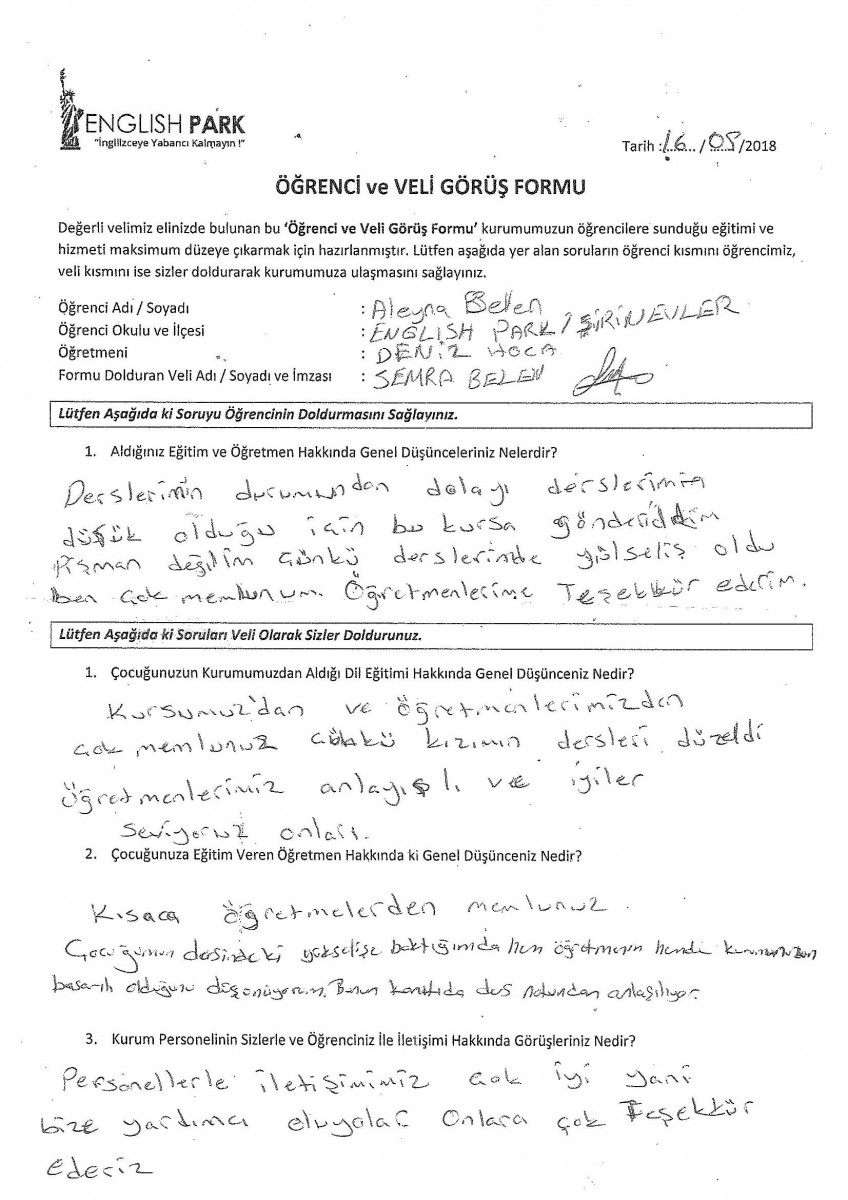 ENGLISH PARK
"İngilizceye Yabancı Kalmayın !"
Tarih : 16 / 05 /2018
ÖĞRENCİ ve VELİ GÖRÜŞ FORMU
Değerli velimiz elinizde bulunan bu 'Öğrenci ve Veli Görüş Formu' kurumumuzun öğrencilere sunduğu eğitimi ve
hizmeti maksimum düzeye çıkarmak için hazırlanmıştır. Lütfen aşağıda yer alan soruların öğrenci kısmını öğrencimiz,
veli kısmını ise sizler doldurarak kurumumuza ulaşmasını sağlayınız.
Öğrenci Adı / Soyadı : Aleyna Belen
Öğrenci Okulu ve İlçesi : ENGLISH PARK / ŞİRİNEVLER
Öğretmeni : DENİZ HOCA
Formu Dolduran Veli Adı / Soyadı ve İmzası : SEMRA BELEN
Lütfen Aşağıda ki Soruyu Öğrencinin Doldurmasını Sağlayınız.
1. Aldığınız Eğitim ve Öğretmen Hakkında Genel Düşünceleriniz Nelerdir?
Derslerimin durumundan dolayı derslerimin
düşük olduğu için bu kursa
Pişman değilim Çünkü derslerimde yülseliş oldu
ben çok memlunum. Öğretmenlerime Teşekkür ederim.
Lütfen Aşağıda ki Soruları Veli Olarak Sizler Doldurunuz.
1. Çocuğunuzun Kurumumuzdan Aldığı Dil Eğitimi Hakkında Genel Düşünceniz Nedir?
Kursumuz'dan ve öğretmenlerimizden
çok memlunuz çünkü kızımın dersleri düzeldi
öğretmenlerimiz anlayışlı ve iyiler
seviyoruz onları.
2. Çocuğunuza Eğitim Veren Öğretmen Hakkında ki Genel Düşünceniz Nedir?
Kısaca öğretmelerden memlunuz.
Çocuğumun dersindeki yükselişe baktığımda hem öğretmenin hemde kurumunuzun
başarılı olduğunu düşünüyorum. Bunun kanıtıda ders notundan anlaşılıyor.
3. Kurum Personelinin Sizlerle ve Öğrenciniz İle İletişimi Hakkında Görüşleriniz Nedir?
Personellerle iletişimimiz çok iyi yani
bize yardımcı oluyolar onlara çok Teşekkür
ederiz